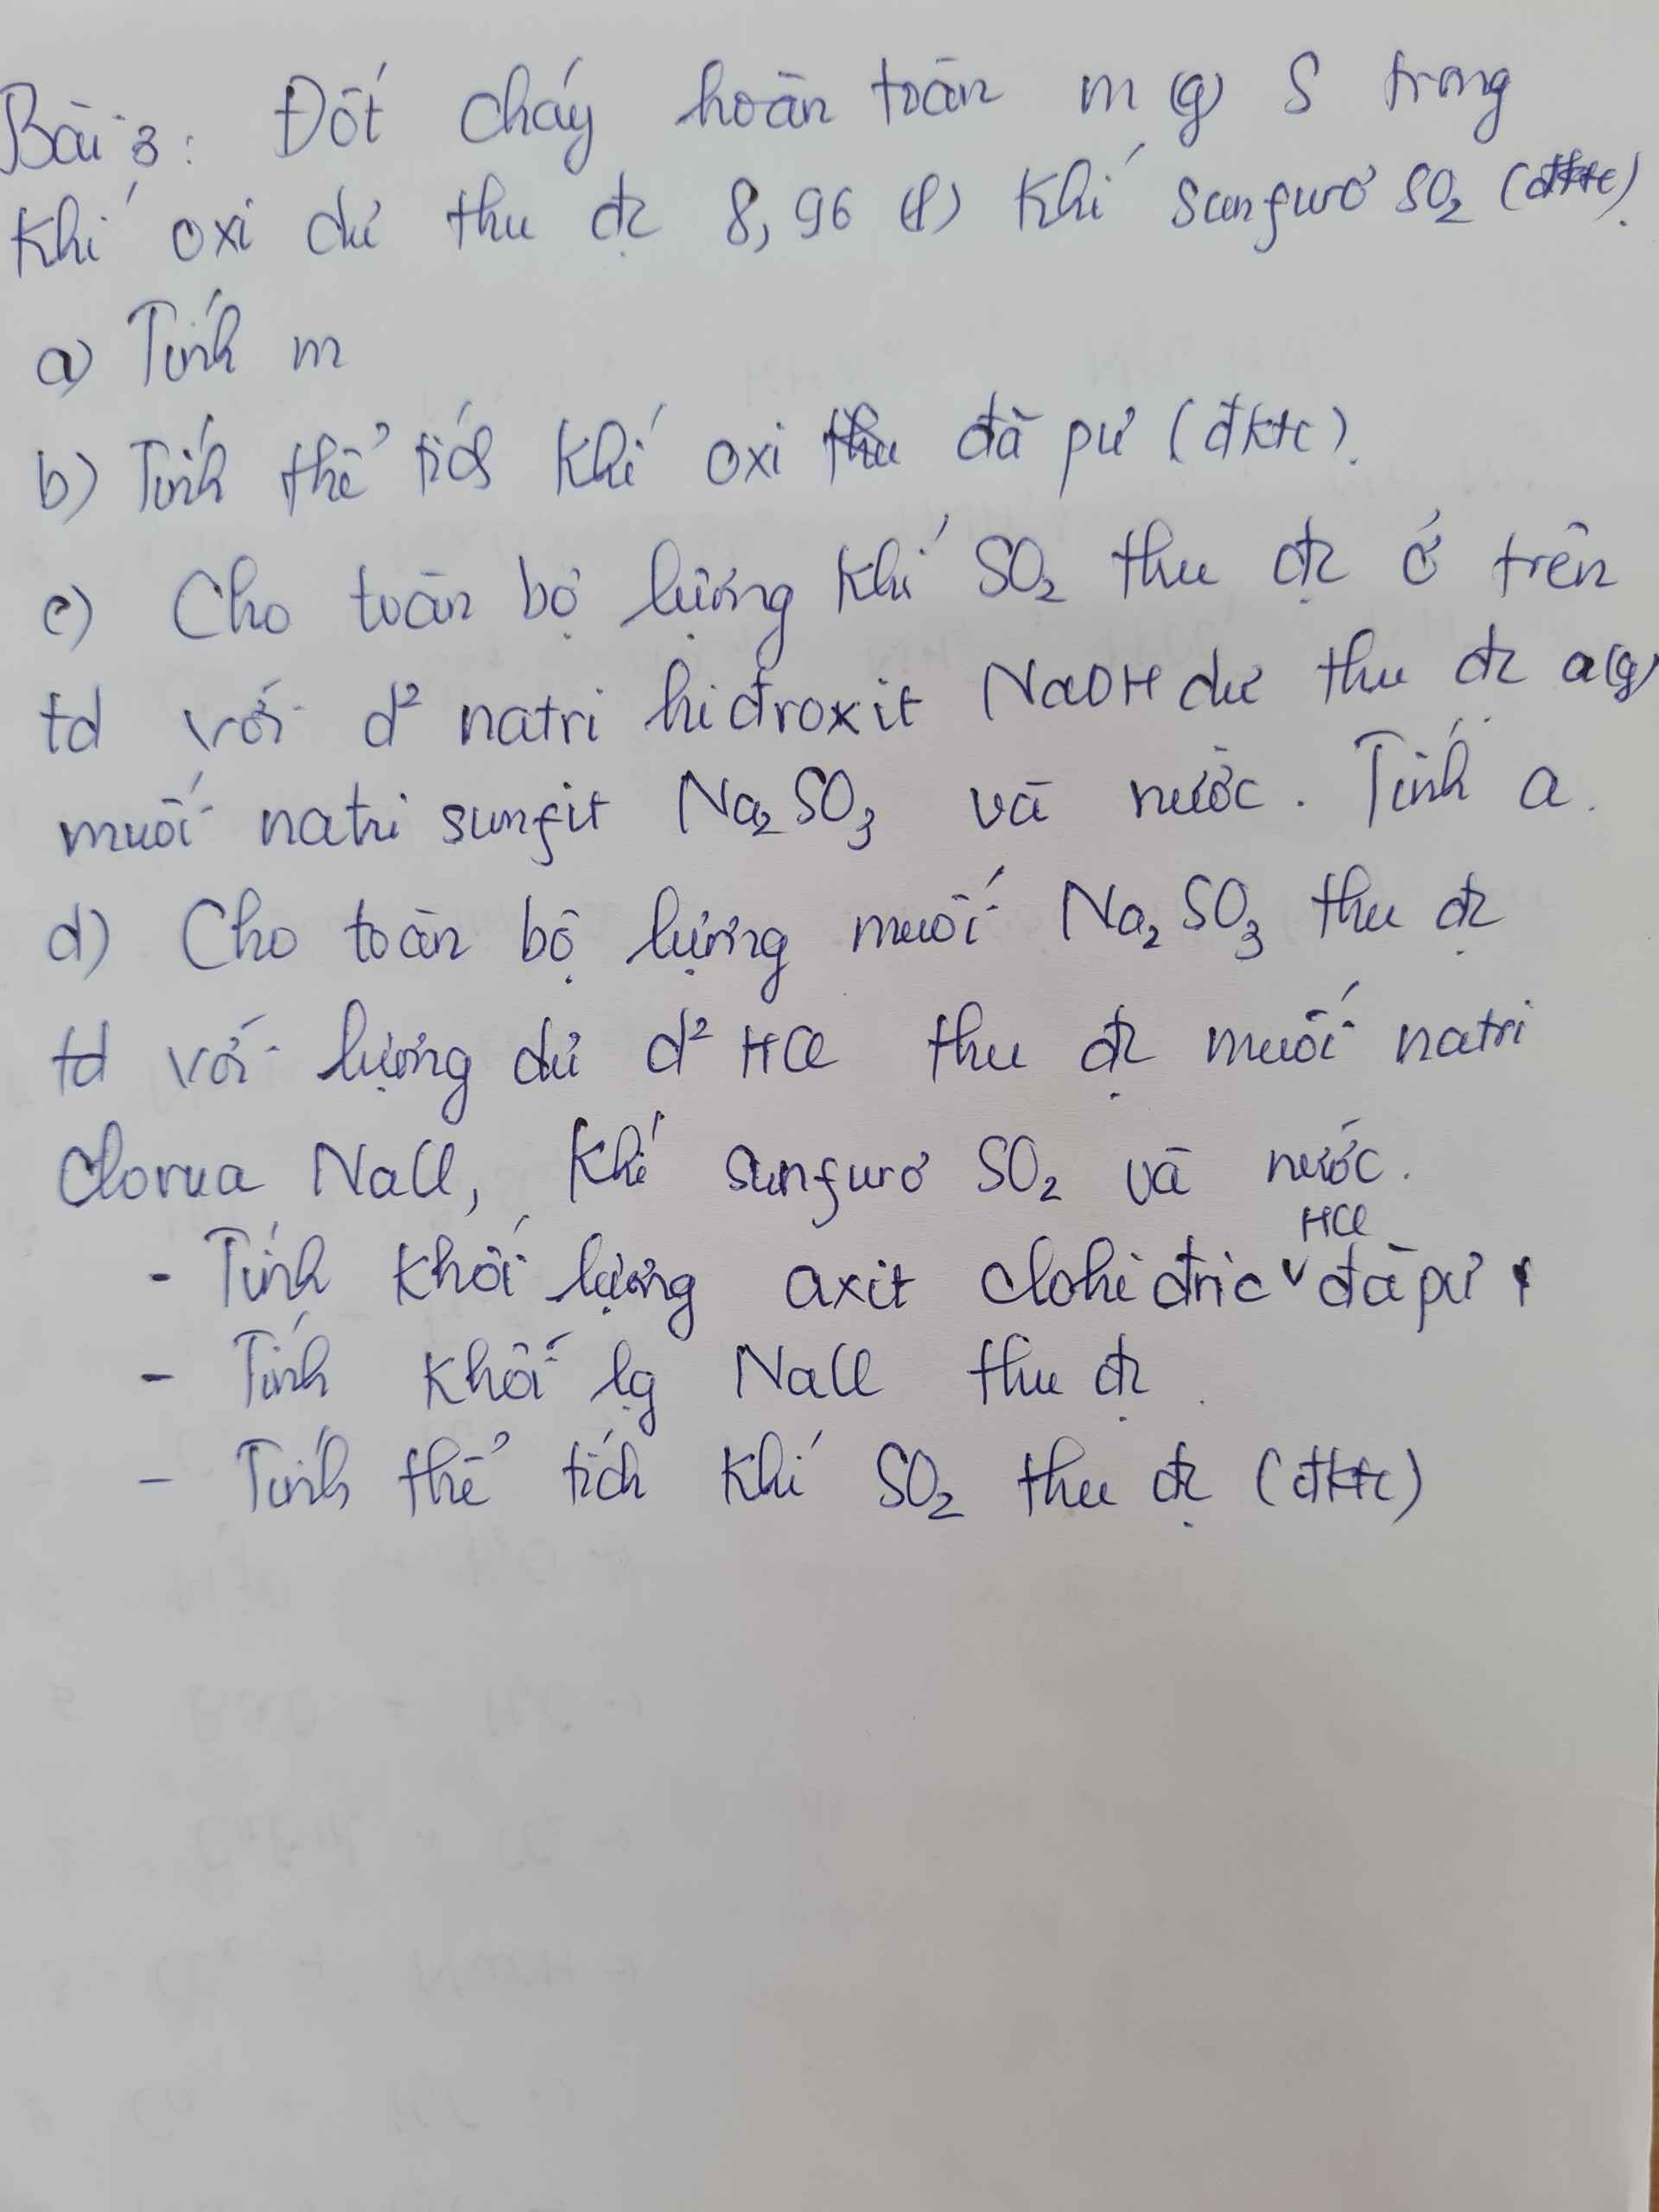 Bài 3: Đốt cháy hoàn toàn m (g) S trong
khí oxi dư thu đc 8,96 (l) khí sunfurơ SO₂ (đktc).
a) Tính m
b) Tính thể tích khí oxi đã pư (đktc).
c) Cho toàn bộ lượng khí SO₂ thu đc ở trên
td với d² natri hiđroxit NaOH dư thu đc a(g)
muối natri sunfit Na₂SO₃ và nước. Tính a.
d) Cho toàn bộ lượng muối Na₂SO₃ thu đc
td với lượng dư d² HCl thu đc muối natri
clorua NaCl, khí sunfurơ SO₂ và nước.
- Tính khối lượng axit clohiđric HCl đã pư
- Tính khối lg NaCl thu đc
- Tính thể tích khí SO₂ thu đc (đktc)